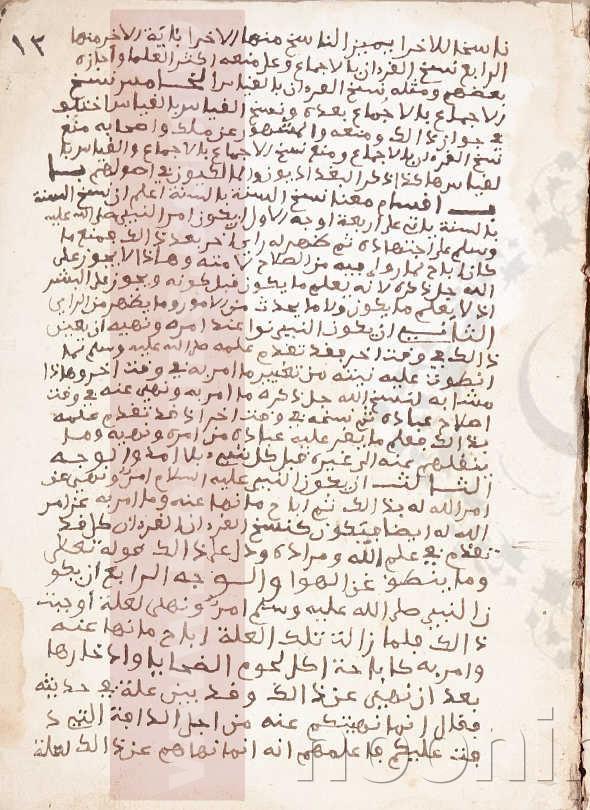 ١٣
ناسخا للاخر يميز الناسخ منها الاخر اية الاخر منها
الرابع نسخ القرءان بالاجماع وعلى منعه اكثر العلما واجازه
بعضهم ومثله نسخ القرءان بالقياس الخامس نسخ
الاجماع بالاجماع بعده ونسخ القياس بالقياس اختلف
في جواز ذالك ومنعه والمشهور عن ملك واصحابه منع
نسخ القرءان بالاجماع ومنع نسخ الاجماع بالاجماع والقياس بال
لقياس هاكذا ذكر البغداديون المالكيون في اصولهم بـــا
ب اقسام معنا نسخ السنة بالسنة اعلم ان نسخ السنة
بالسنة ياتي على اربعة اوجه الاول ان يكون امر النبي صلى الله عليه
وسلم على اجتهاده ثم ظهر له راي اخر بعد ذالك فمنع ما
كان اباح لما رءا فيه من الصلاح لامته وهاذا لا يجوز على
الله جل ذكره لانه يعلم ما يكون قبل كونه ويجوز على البشر
اذ لا يعلم ما يكون ولا ما يحدث من الامور وما يظهر من الراي
الثاني ان يكون النبي نوا عند امره ونهيه ان يغير
ذالك في وقت اخر فقد تقدم علمه صلى الله عليه وسلم لما
انطوت عليه نيته من تغيير ما امر به في وقت اخر وهاذا
مشابه لنسخ الله جل ذكره ما امر به ونهى عنه في وقت
اصلاح عباده ثم نسخه في وقت اخر اذ قد تقدم علمه
بذالك فعلم ما يقر عليه عباده من امره ونهيه وما
ينقلهم عنه الى غيره قبل كل شيء بلا امد والوجه
الثالث ان يكون النبي عليه السلام امر ونهى عن
امر الله له بذالك ثم اباح ما نها عنه وما امر به عن امر
الله له ايضا فيكون كنسخ القرءان القرءان كل قد
تقدم في علم الله ومراده ودل على ذالك قوله تعالى
وما ينطق عن الهوا والوجه الرابع ان يكو
ن النبي صلى الله عليه وسلم امر ونهى لعلة اوجبت
ذالك فلما زالت تلك العلة اباح ما نها عنه
وامر به كاباحة اكل لحوم الضحايا وادخارها
بعد ان نهى عن ذالك وقد بين علة في حديثه
فقال انما نهيتكم عنه من اجل الدافة التي د
فت عليكم فاعلمهم انه انما نهاهم عن ذالك لعلة